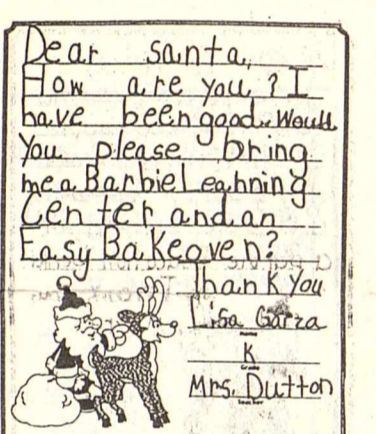 Dear santa,
How are you? I
have been good. Would
You please bring
me a Barbie Learning
Center and an
Easy Bake oven?
Thank you
Lisa Garza
Name
K
Grade
Mrs. Dutton
Teacher